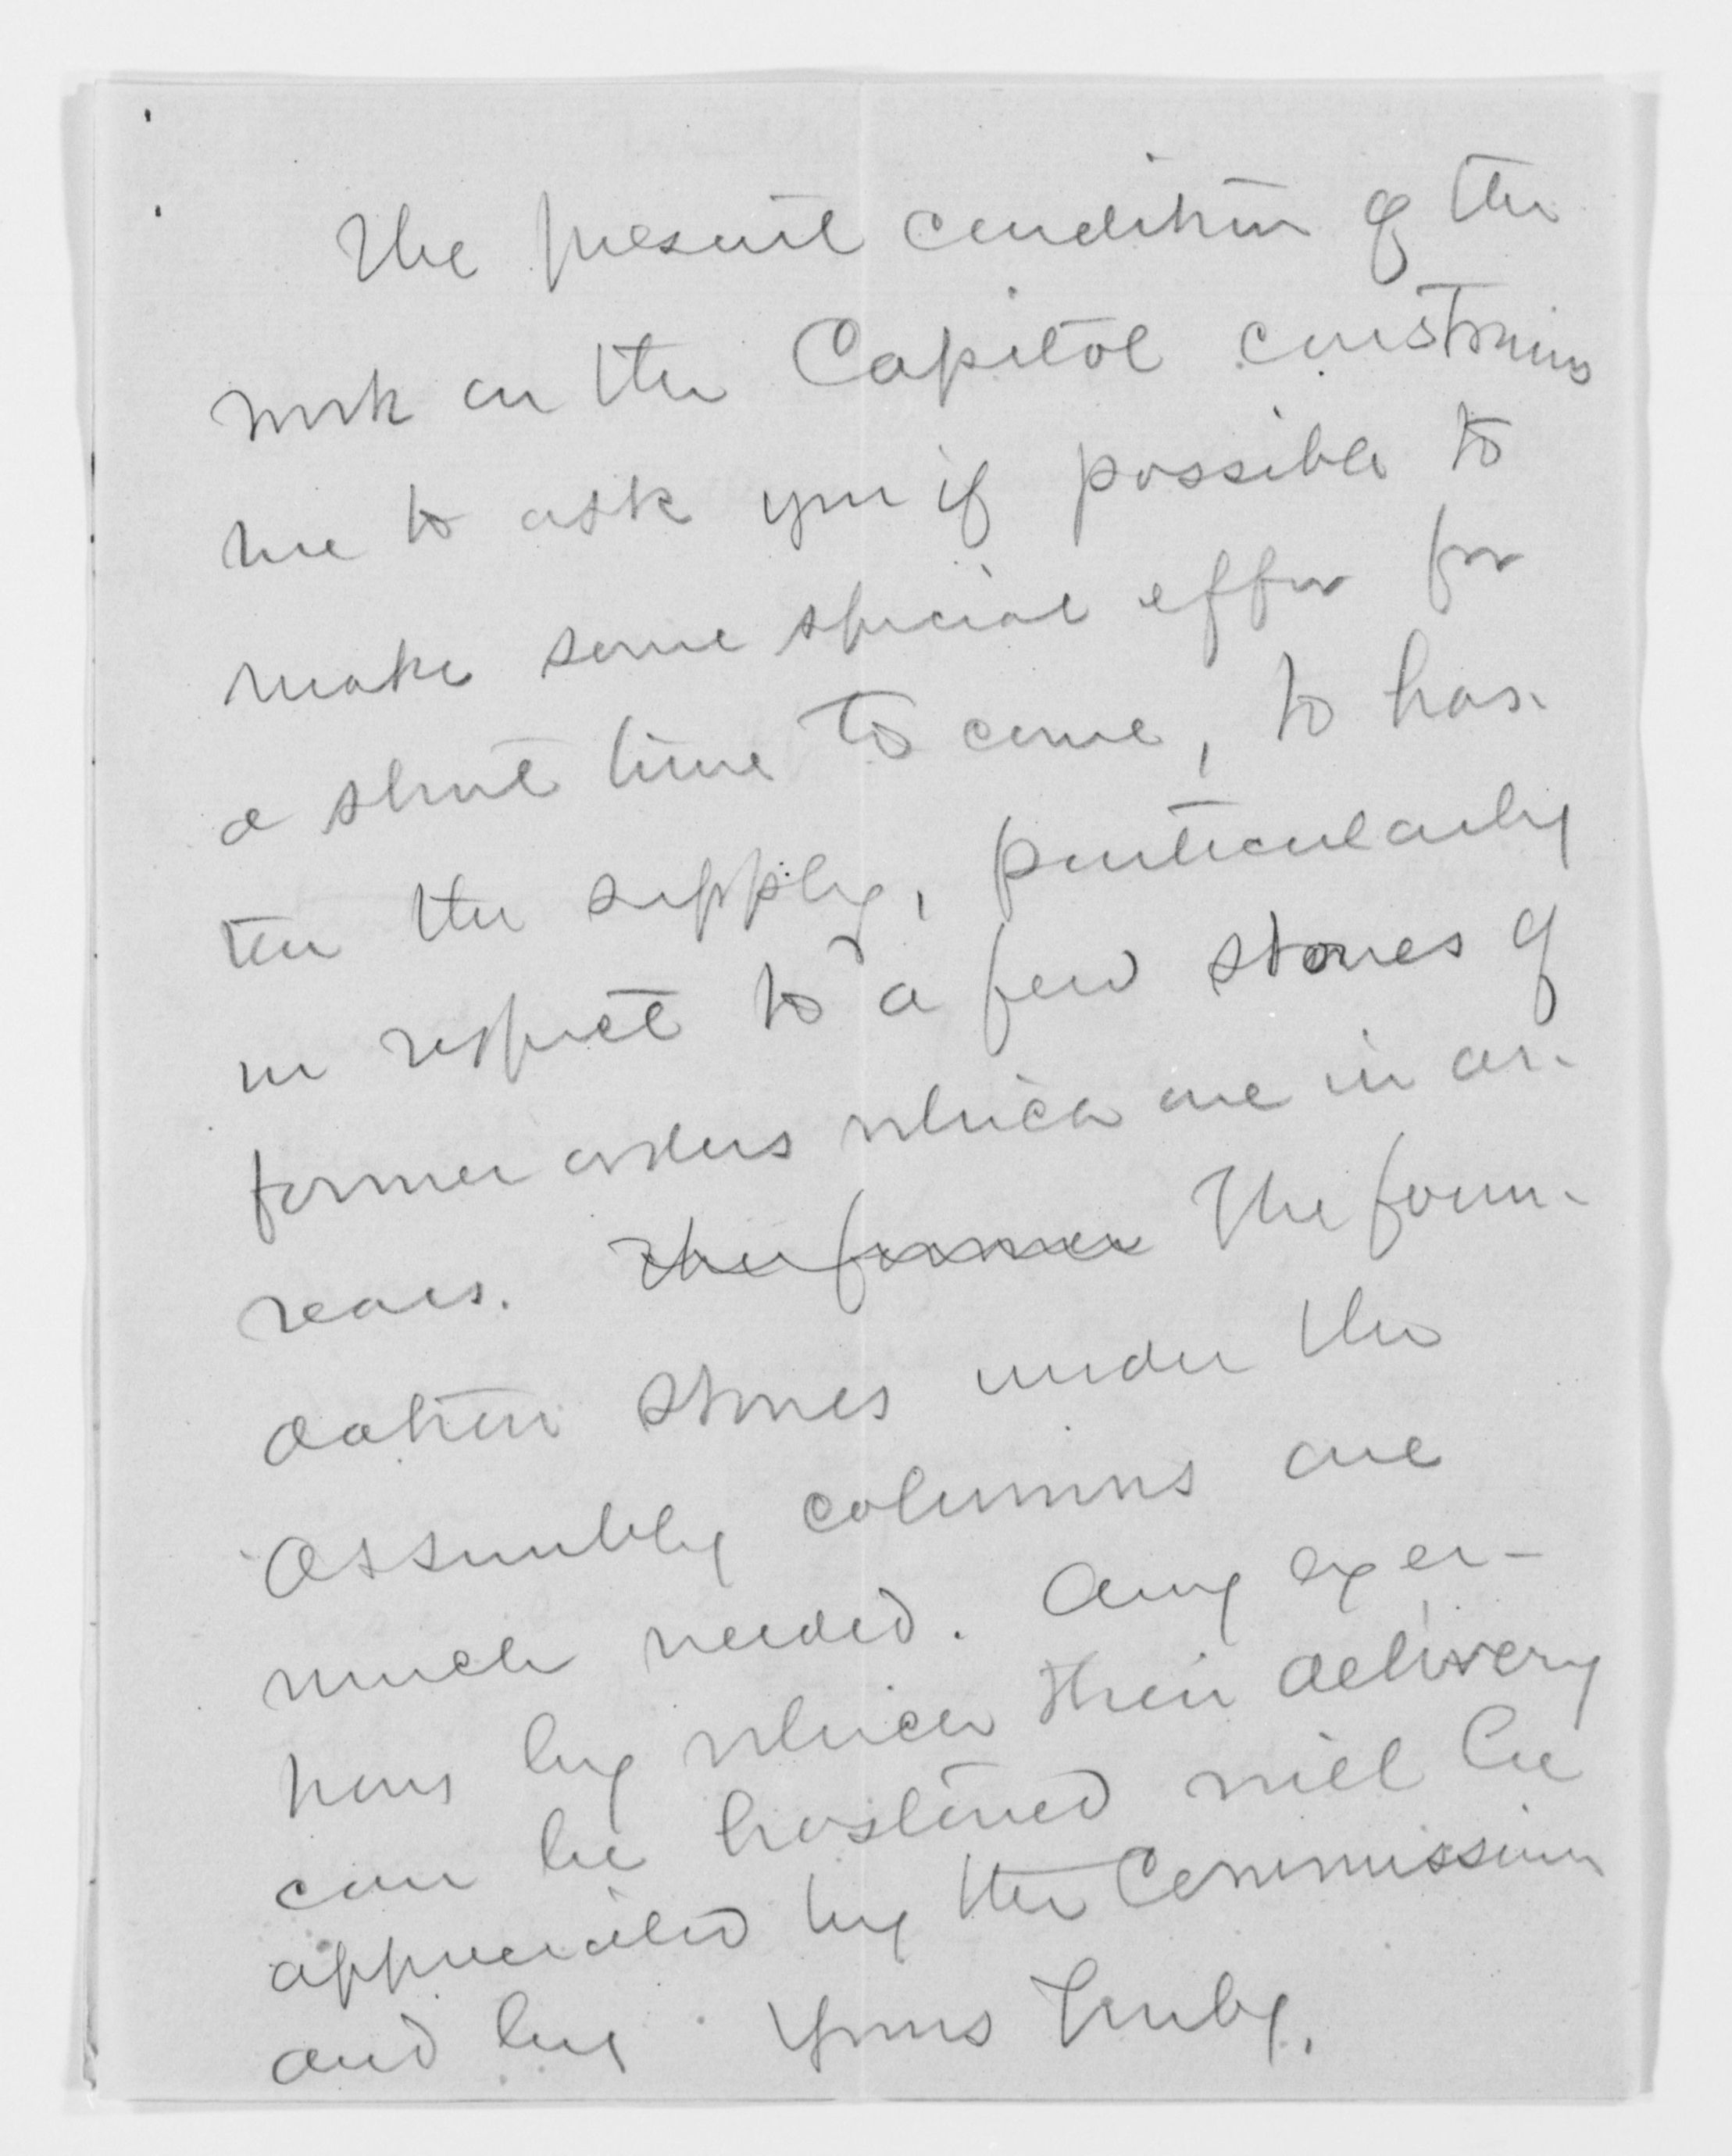 The present condition of the
work on the Capitol constrains
me to ask you if possible to
make some special effor for
a short time to come, to has-
ten the supply, particularly
in respect to a few stones of
former orders which are in ar-
rears. The former The foun-
dation stones under the
Assembly columns are
much needed. Any exer-
tions by which their delivery
can be hastened will be
appreciated by the Commission
and by Yours truly,